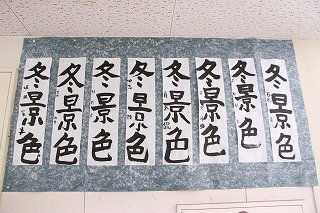 冬景色
冬景色
冬景色
冬景色
冬景色
冬景色
冬景色
冬景色